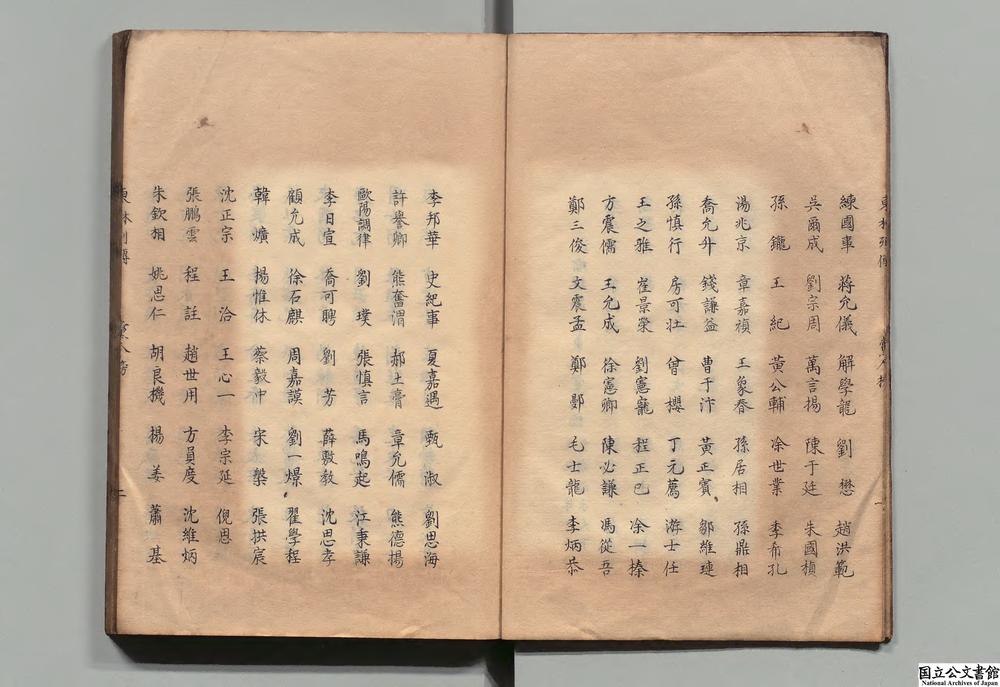 練國事 蔣允儀 解學龍 劉懋 趙洪範
吳爾成 劉宗周 萬言揚 陳于廷 朱國楨
孫鑨 王紀 黃公輔 凃世業 李希孔
湯兆京 章嘉禎 王象春 孫居相 孫鼎相
喬允升 錢謙益 曹于汴 黃正賓 鄒維璉
孫慎行 房可壯 曾櫻 丁元薦 游士任
王之雅 崔景榮 劉憲寵 程正巳 凃一榛
方震儒 王允成 徐憲卿 陳必謙 馮從吾
鄭三俊 文震孟 鄭鄤 毛士龍 李炳恭
李邦華 史紀事 夏嘉遇 甄淑 劉思海
許譽卿 熊奮渭 郝土膏 章允儒 熊德揚
歐陽調律 劉璞 張慎言 馬鳴起 江秉謙
李日宣 喬可聘 劉芳 薛敷教 沈思孝
顧允成 徐石麒 周嘉謨 劉一燝 翟學程
韓爌 楊惟休 蔡毅中 宋槃 張拱宸
沈正宗 王洽 王心一 李宗延 倪思
張鵬雲 程註 趙世用 方員度 沈維炳
朱欽相 姚思仁 胡良機 楊姜 蕭基
二
国立公文書館
National Archives of Japan